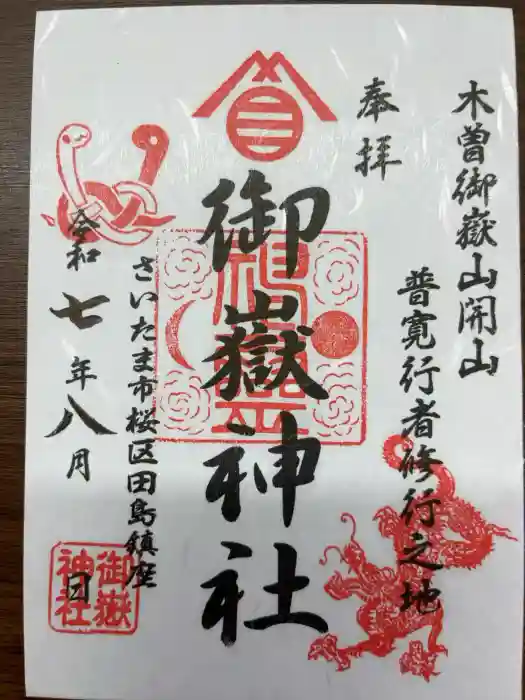 木曽御嶽山開山
普寛行者修行之地
奉拝
御嶽神社
さいたま市桜区田島鎮座
令和七年八月日
御嶽神社